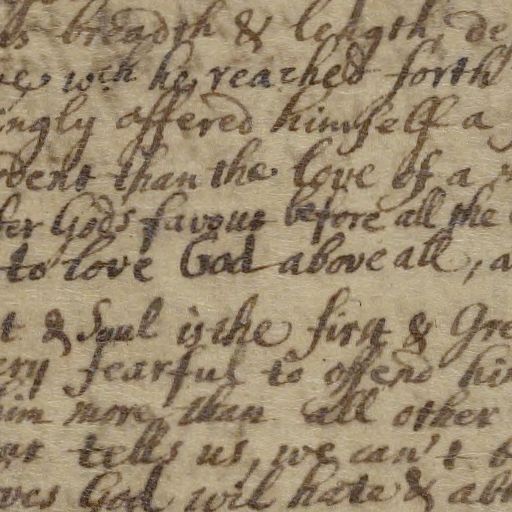 its breadth & length, de
ve wch he reached forth
ingly offered himself a
rdent than the love of a
fer Gods favour before all the
to love God above all, a
t & Soul is the first & Gre
ery fearful to offend hi
him more than all other
our tells us, we can't b
oves God wil hate & abh